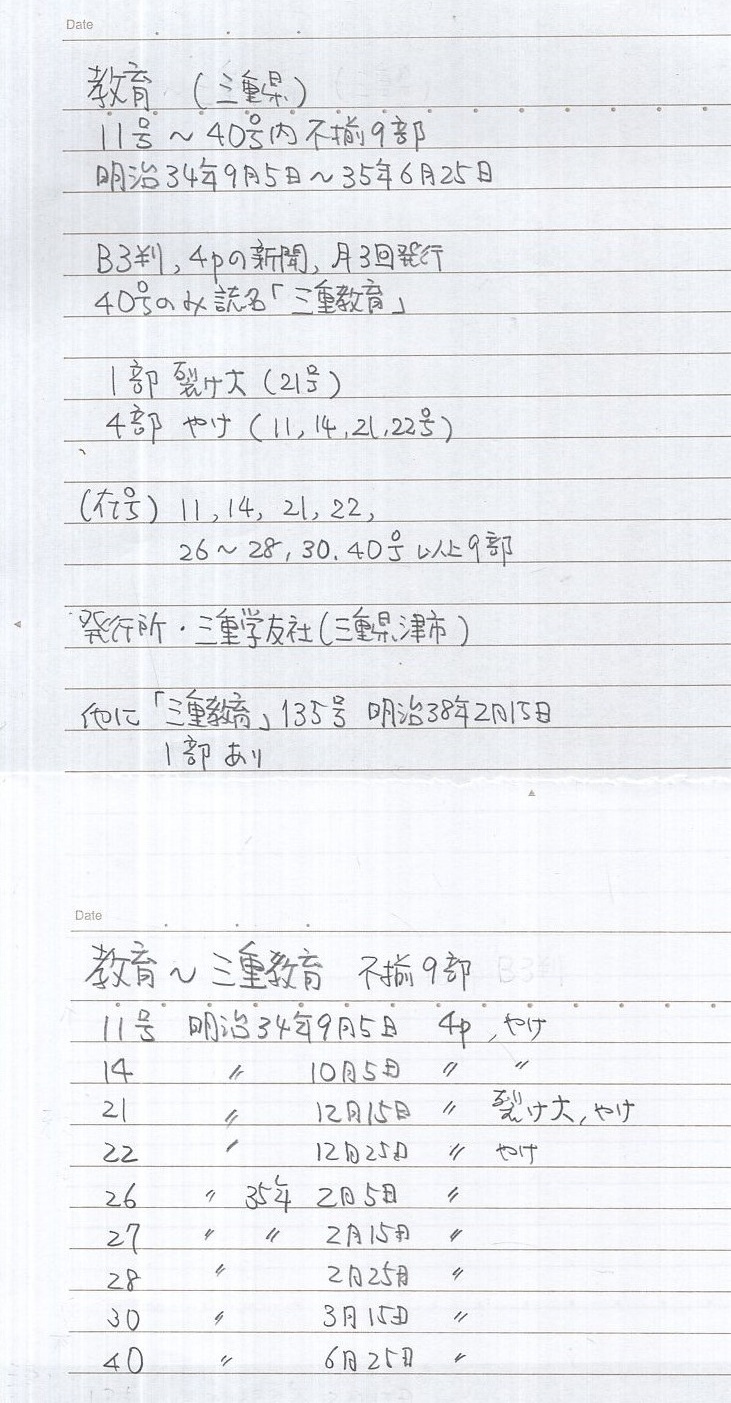 Date
教育 (三重県)
11号～40号内不揃9部
明治34年9月5日～35年6月25日
B3判, 4pの新聞, 月3回発行
40号のみ誌名「三重教育」
1部 裂け大 (21号)
4部 やけ (11, 14, 21, 22号)
(在号) 11, 14, 21, 22,
26～28, 30. 40号 以上9部
発行所・三重学友社(三重県津市)
他に「三重教育」135号 明治38年2月15日
1部あり
Date
教育～三重教育 不揃9部
11号 明治34年9月5日 4p, やけ
14 〃 10月5日 〃 〃
21 〃 12月15日 〃 裂け大, やけ
22 〃 12月25日 〃 やけ
26 〃 35年 2月5日 〃
27 〃 〃 2月15日 〃
28 〃 2月25日 〃
30 〃 3月15日 〃
40 〃 6月25日 〃